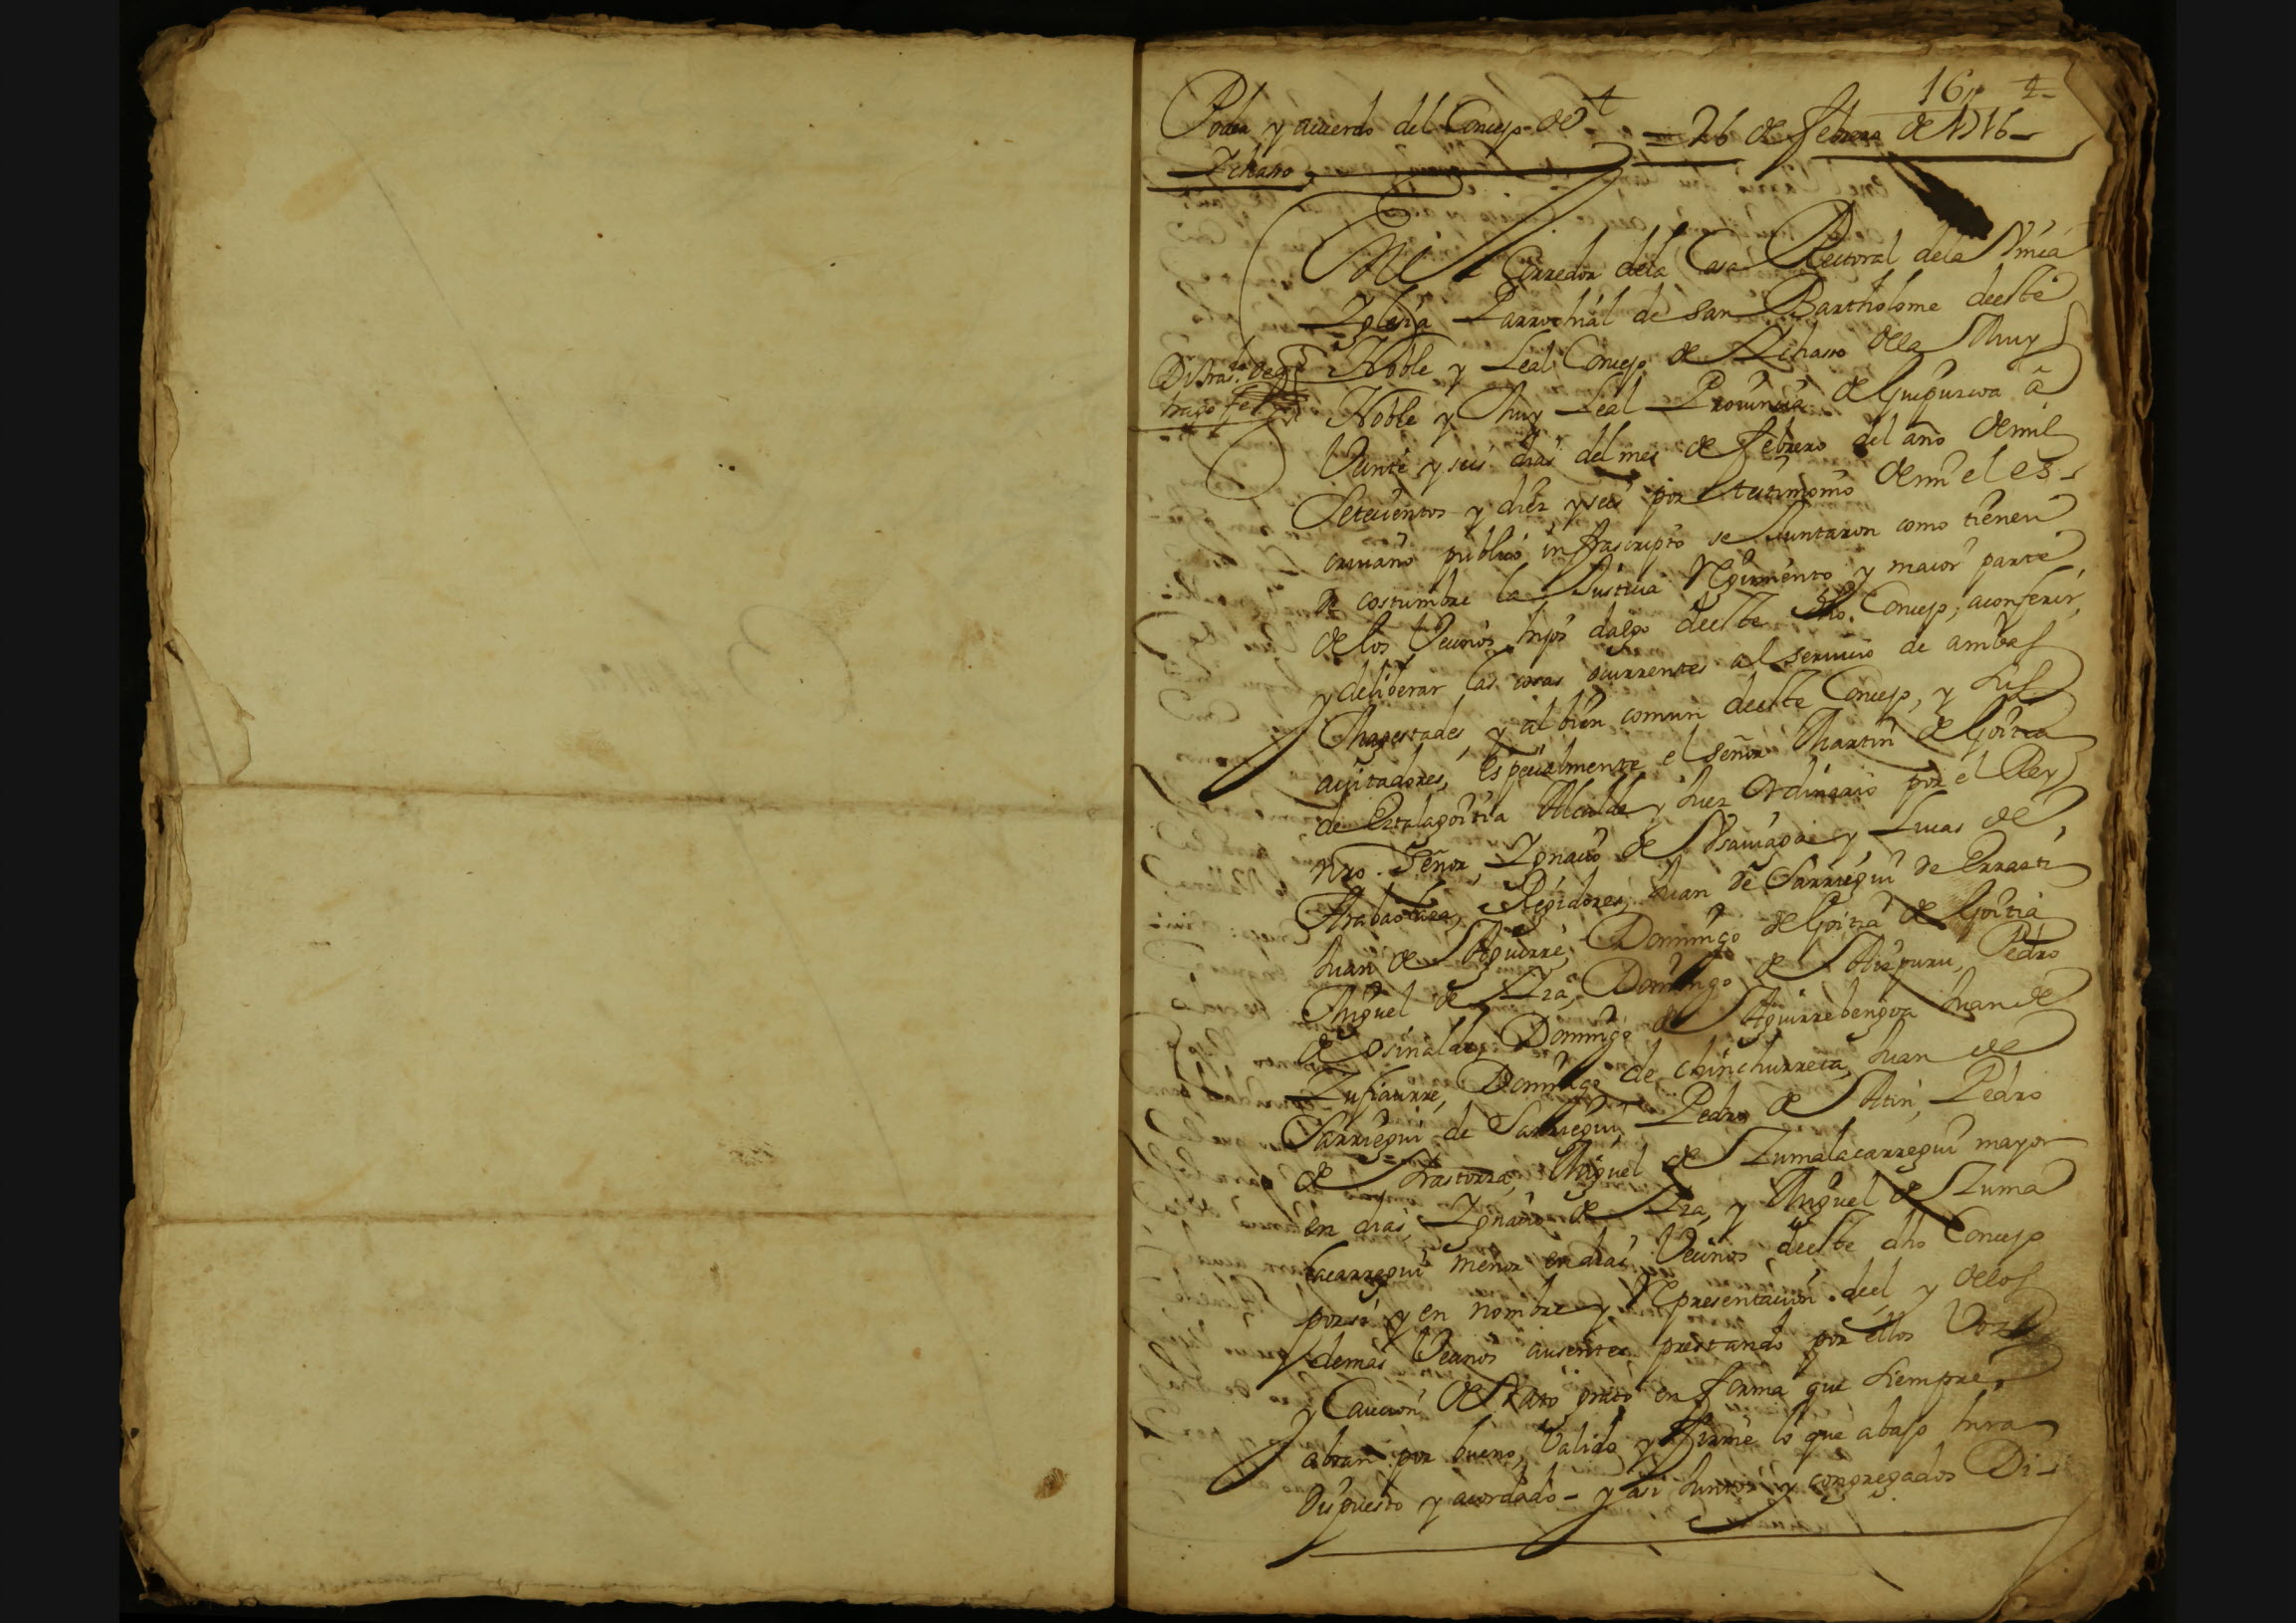 16
Poder y acuerdo del Concejo de
Ichasso = 26 de febrero de 1716
En el Corredor dela Casa Rectoral dela Unica
Iglesia Parrochial de san Bartholome deeste
Noble y Leal Concejo de Ichasso dela Muy
Noble y Muy Leal Provincia de Guipuzcoa â
Veinte y seis dias del mes de febrero del año de mil
Setecientos y diez y seis por testimonio de mi el es-
crivano publico infrascripto se Juntaron como tienen
de costumbre la Justicia Regimiento y maior parte
de los Vecinos hijos dalgo deeste dho. Concejo, a conferir,
y deliberar las cosas ocurrentes al servicio de ambas
Magestades, y al bien comun deeste Concejo, y sus
avitadores, Especialmente el señor Martin de Goitia
de Ertalagoitia Alcalde y Juez Ordinario por el Rey
nro. Señor, Ignacio de y Lucas de
Regidores, Juan de Sarriegui de Errasti
Juan de Aguirre, Domingo de Goitia de Goitia
Miguel de Domingo de Aizpuru, Pedro
de osinalde, Domingo de Aguirrebengoa Juan de
Zufiaurre, Domingo de chinchurreta, Juan de
Sarriegui de Sarriegui, Pedro de Atin, Pedro
de Miguel de Zumalacarregui mayor
en dias, Ignacio de y Miguel de Zuma
lacarregui menor en dias Vecinos deeste dho Concejo
por si y en nombre y Representacion deel y delos
demas Vecinos ausentes prestando por ellos Voz
y Caucion de Rato grato en forma que siempre
abran por bueno, Valido y firme lo que abajo hira
Dispuesto y acordado - y asi Juntos y congregados Di-